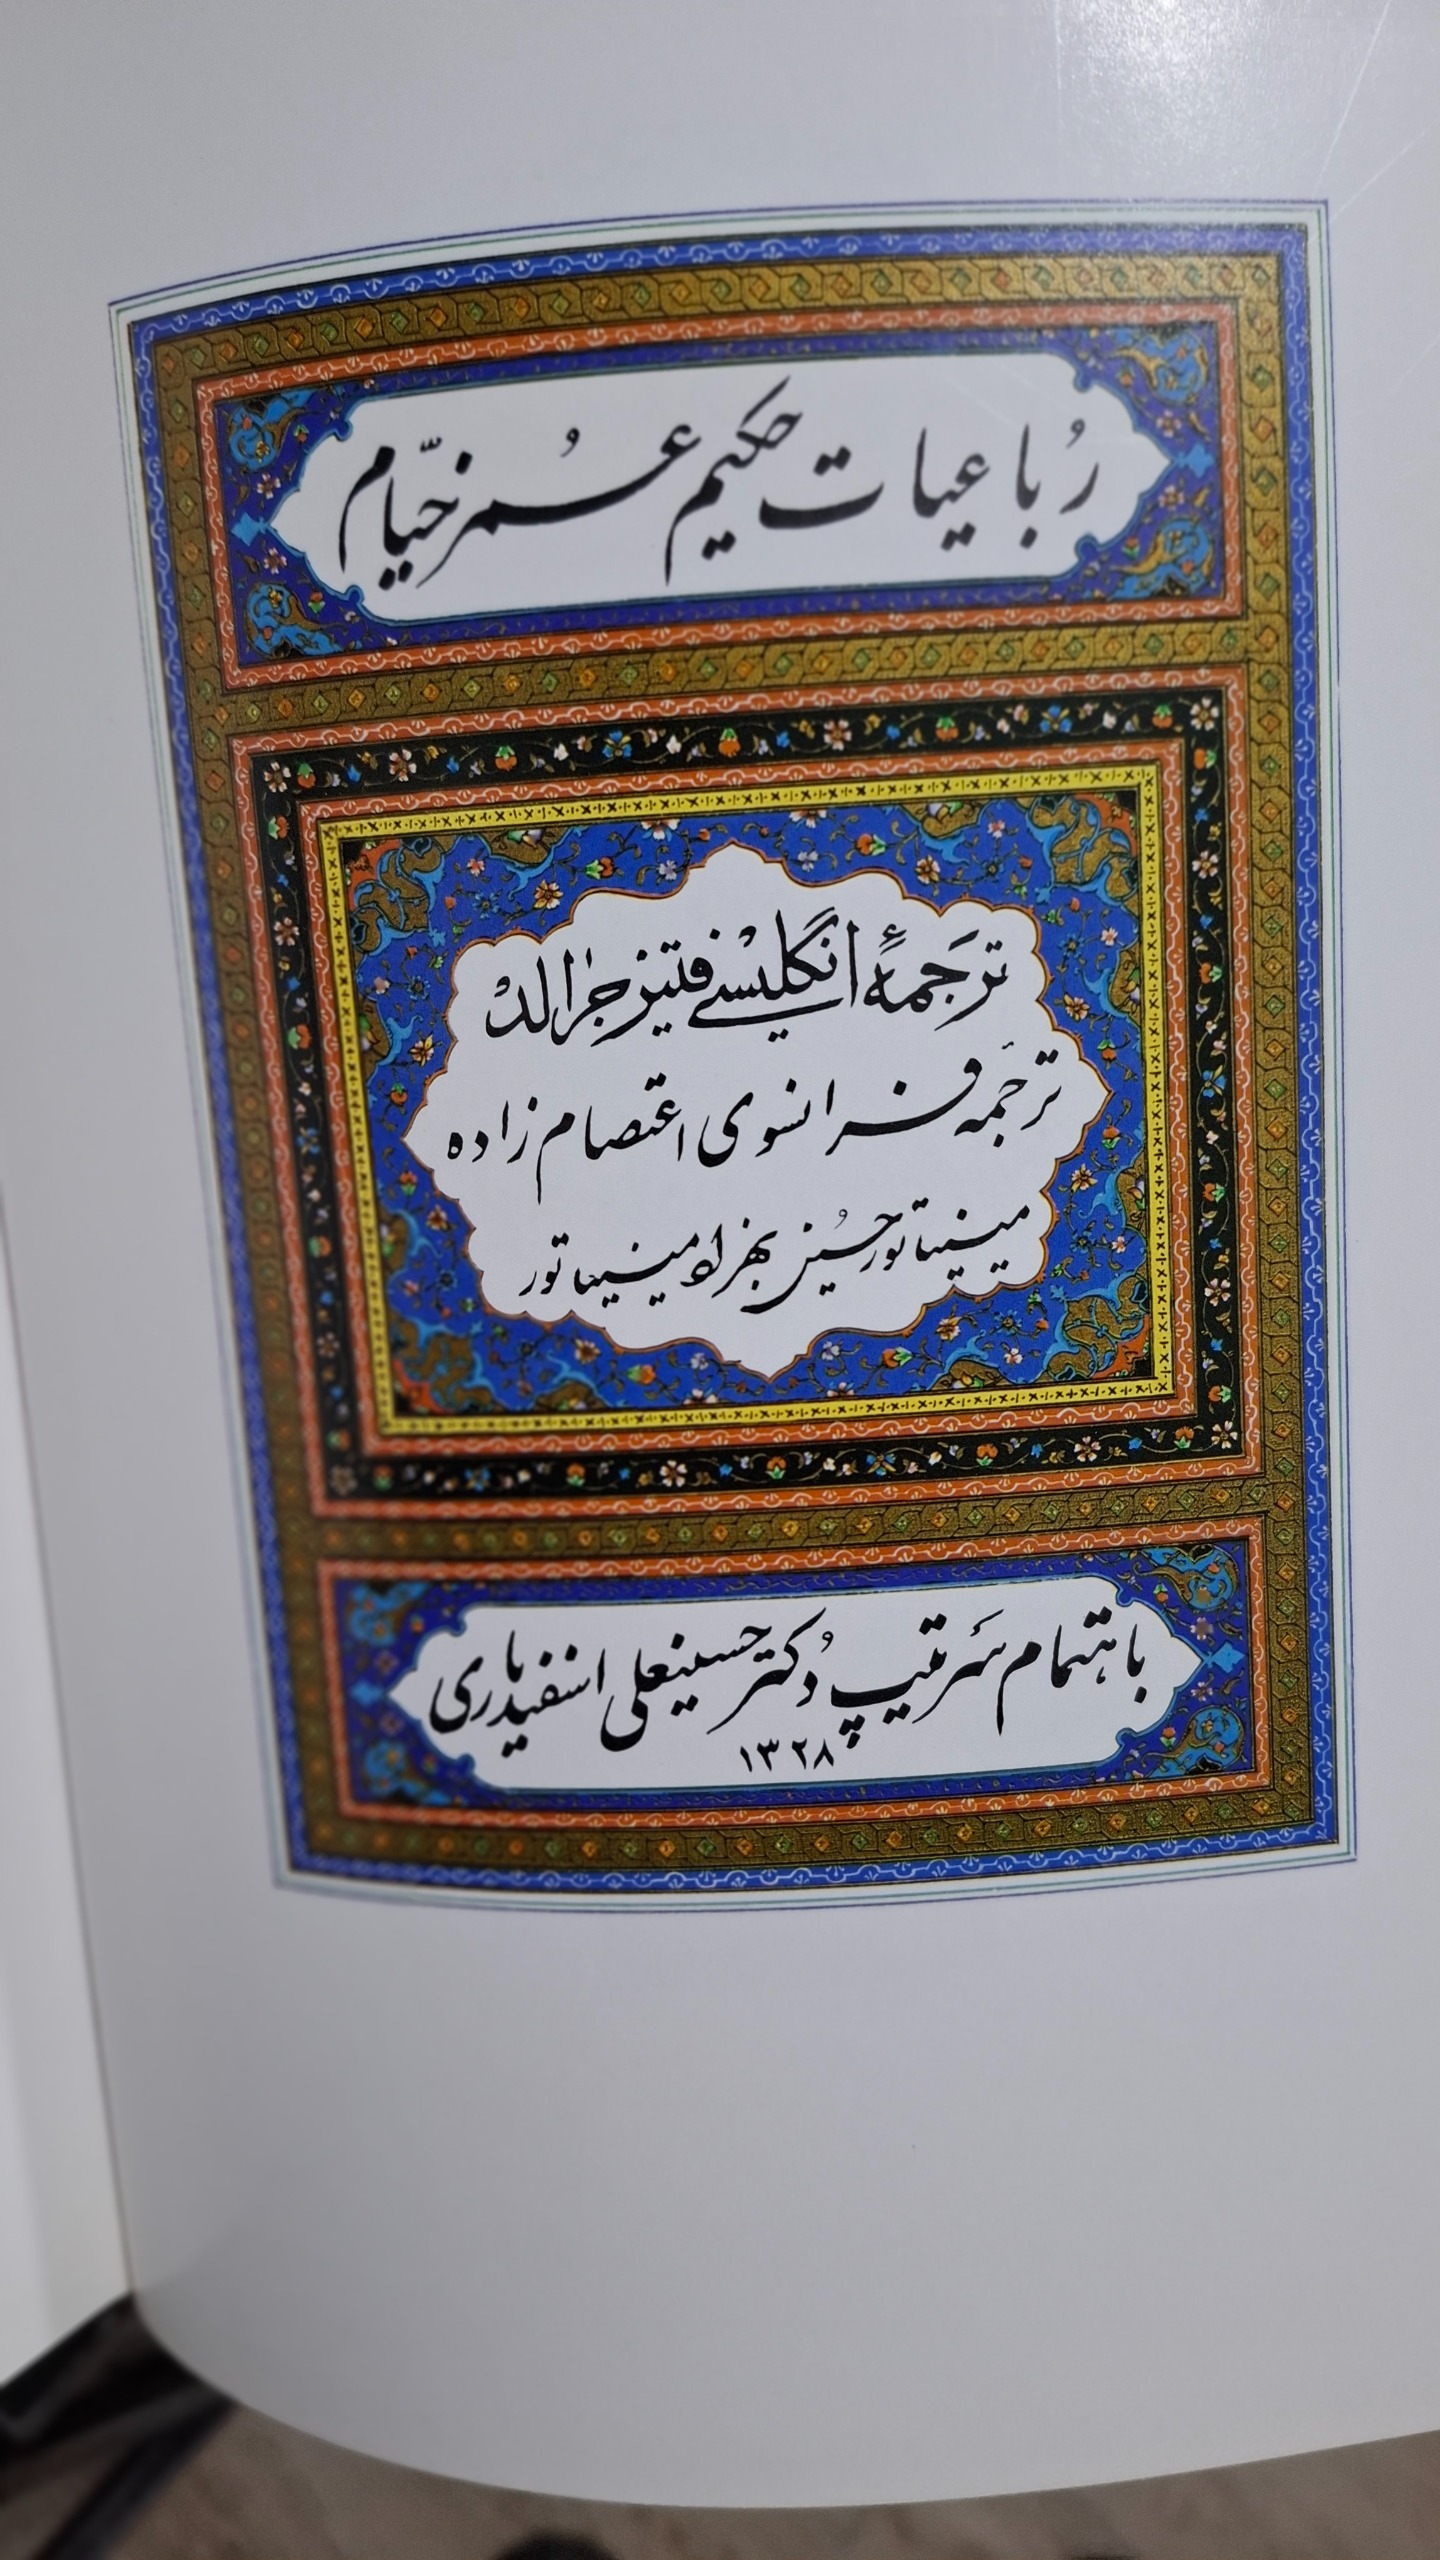 رُباعیات حکیم عُمر خیّام
ترجَمۀ انگلیسی فیتیز جرالد
ترجمه فرانسوی اعتصام زاده
مینیاتور حُسین بهزاد مینیاتور
باهتمام سَرتیپ دُکتر حسینعلی اسفندیاری
۱۳۲۸